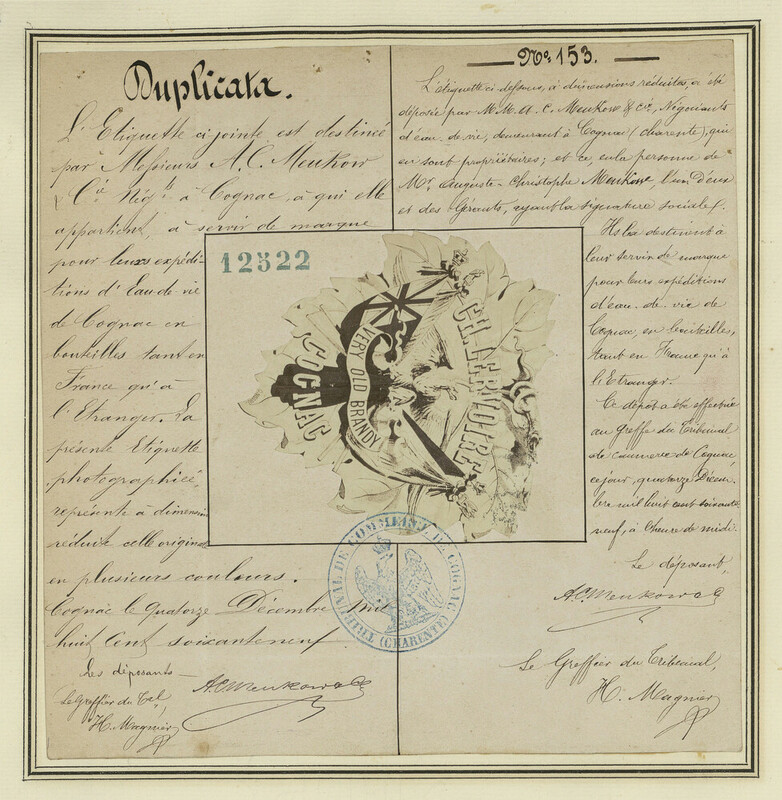 Duplicata.
L'Etiquette ci-jointe est destinée
par Messieurs A. C. Meukow
& Cie Négts à Cognac, à qui elle
appartient, à servir de marque
pour leurs expédi-
tions d'Eau-de-vie
de Cognac en
bouteilles tant en
France qu'à
l'Etranger. La
présente Etiquette
photographiée,
représente à dimension
réduite celle originale
en plusieurs couleurs.
Cognac le quatorze Décembre mil
huit cent soixante neuf
Les déposants
A. C. Meukow & Co
Le Greffier du Tal,
H. Magnier
No 153.
L'étiquette ci-dessous, à dimensions réduites, a été
déposée par M.M. A. C. Meukow & Cie, Négociants
d'eau-de-vie, demeurant à Cognac (Charente), qui
en sont propriétaires; et ce, en la personne de
Mr Auguste-Christophe Meukow, l'un d'eux
et des Gérants, ayant la signature sociale.
Ils la destinent à
leur servir de marque
pour leurs expéditions
d'eau-de-vie de
Cognac, en bouteilles,
tant en France qu'à
l'Etranger.
Ce dépôt a été effectué
au greffe du Tribunal
de commerce de Cognac,
ce jour, quatorze Décem-
bre mil huit cent soixante
neuf, à l'heure de midi.
Le déposant,
A. C. Meukow & Co
Le Greffier du Tribunal,
H. Magnier
12522
CH. LERVOIRE
VERY OLD BRANDY
COGNAC
TRIBUNAL DE COMMERCE DE COGNAC
(CHARENTE)